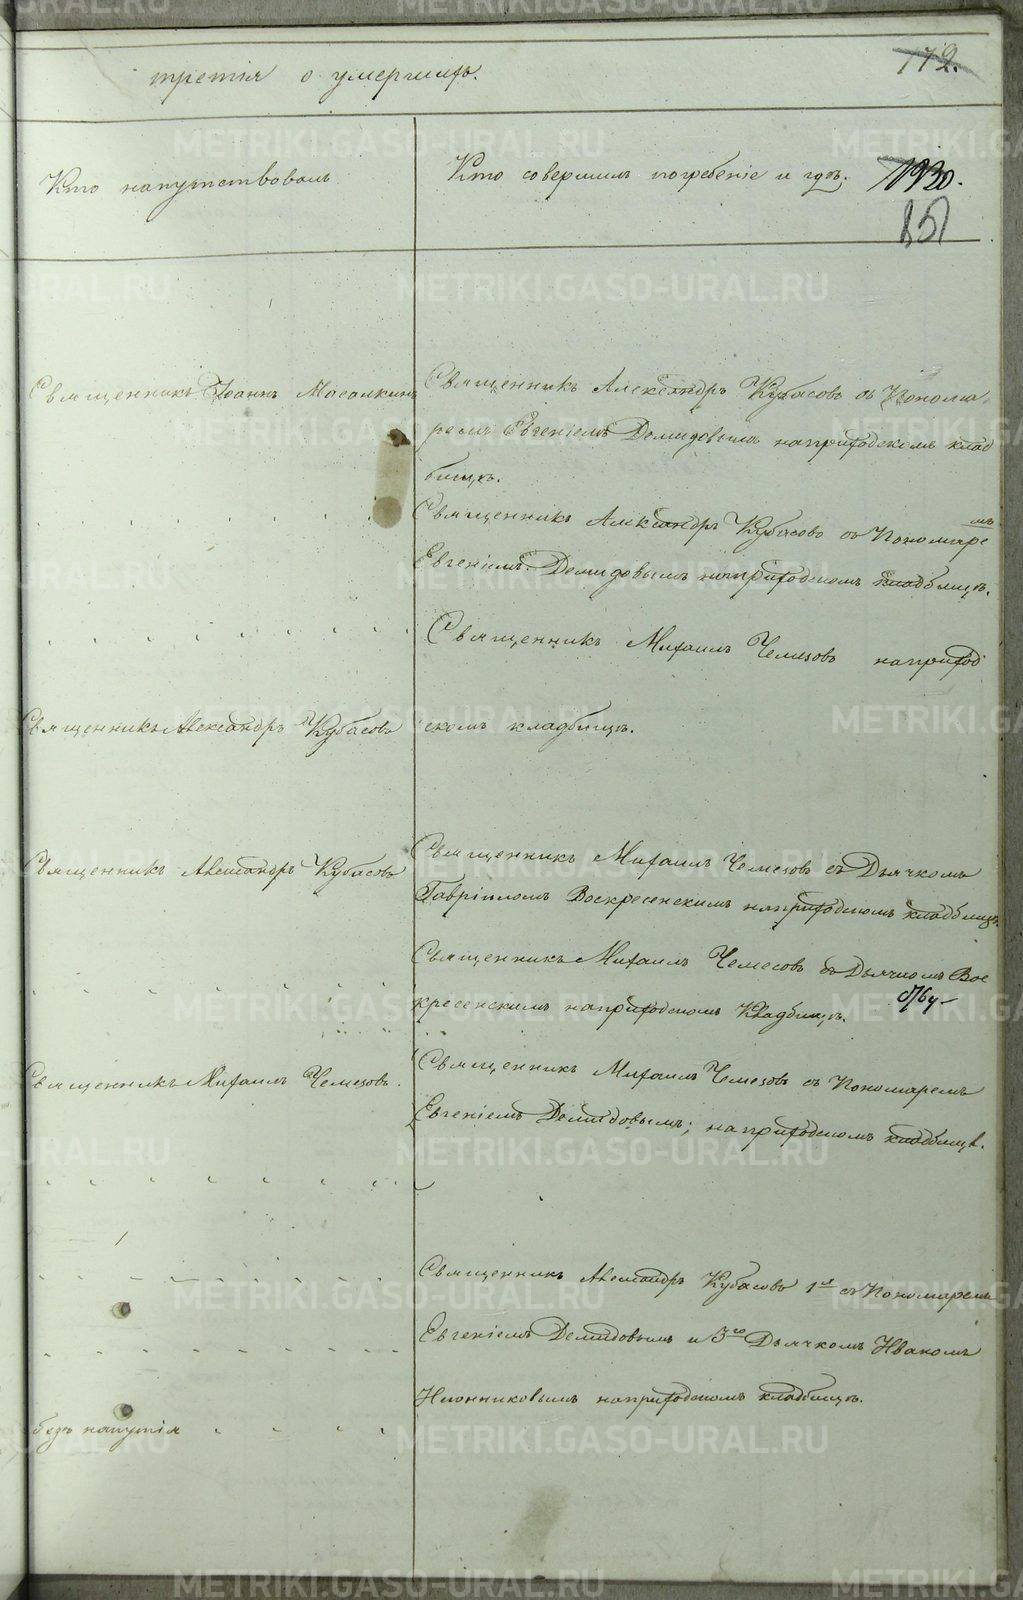 третія о умершихъ.
172.
Кто напутствовалъ
Кто совершилъ погребеніе и гдѣ.
1930.
Священникъ Іоаннъ Масалкинъ
Священникъ Александръ Кубасовъ съ Понома-
ремъ Евгеніемъ Демидовымъ наприходскомъ клад
бищѣ.
Священникъ Александръ Кубасовъ съ Пономаремъ
Евгеніемъ Демидовымъ наприходскомъ кладбищѣ.
Священникъ Михаилъ Чемезовъ наприход
Священникъ Александръ Кубасовъ
скомъ кладбищѣ.
Священникъ Александръ Кубасовъ
Священникъ Михаилъ Чемезовъ съ Дьячкомъ
Гавріиломъ Воскресенскимъ наприходскомъ кладбищѣ.
Священникъ Михаилъ Чемесовъ съ Дьячкомъ Вос
кресенскимъ наприходскомъ Кладбищѣ.
Священникъ Михаилъ Чемезовъ.
Священникъ Михаилъ Чемезовъ съ Пономаремъ
Евгеніемъ Демидовымъ; наприходскомъ кладбищѣ.
Священникъ Александръ Кубасовъ 1й съ Пономаремъ
Евгеніемъ Демидовымъ и 3го Дьячкомъ Иваномъ
наприходскомъ кладбищѣ.
безъ напутія
METRIKI.GASO-URAL.RU